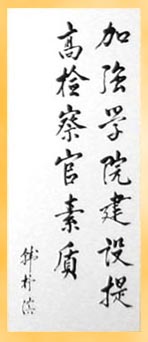 加强学院建设提
高检察官素质
韩杼滨